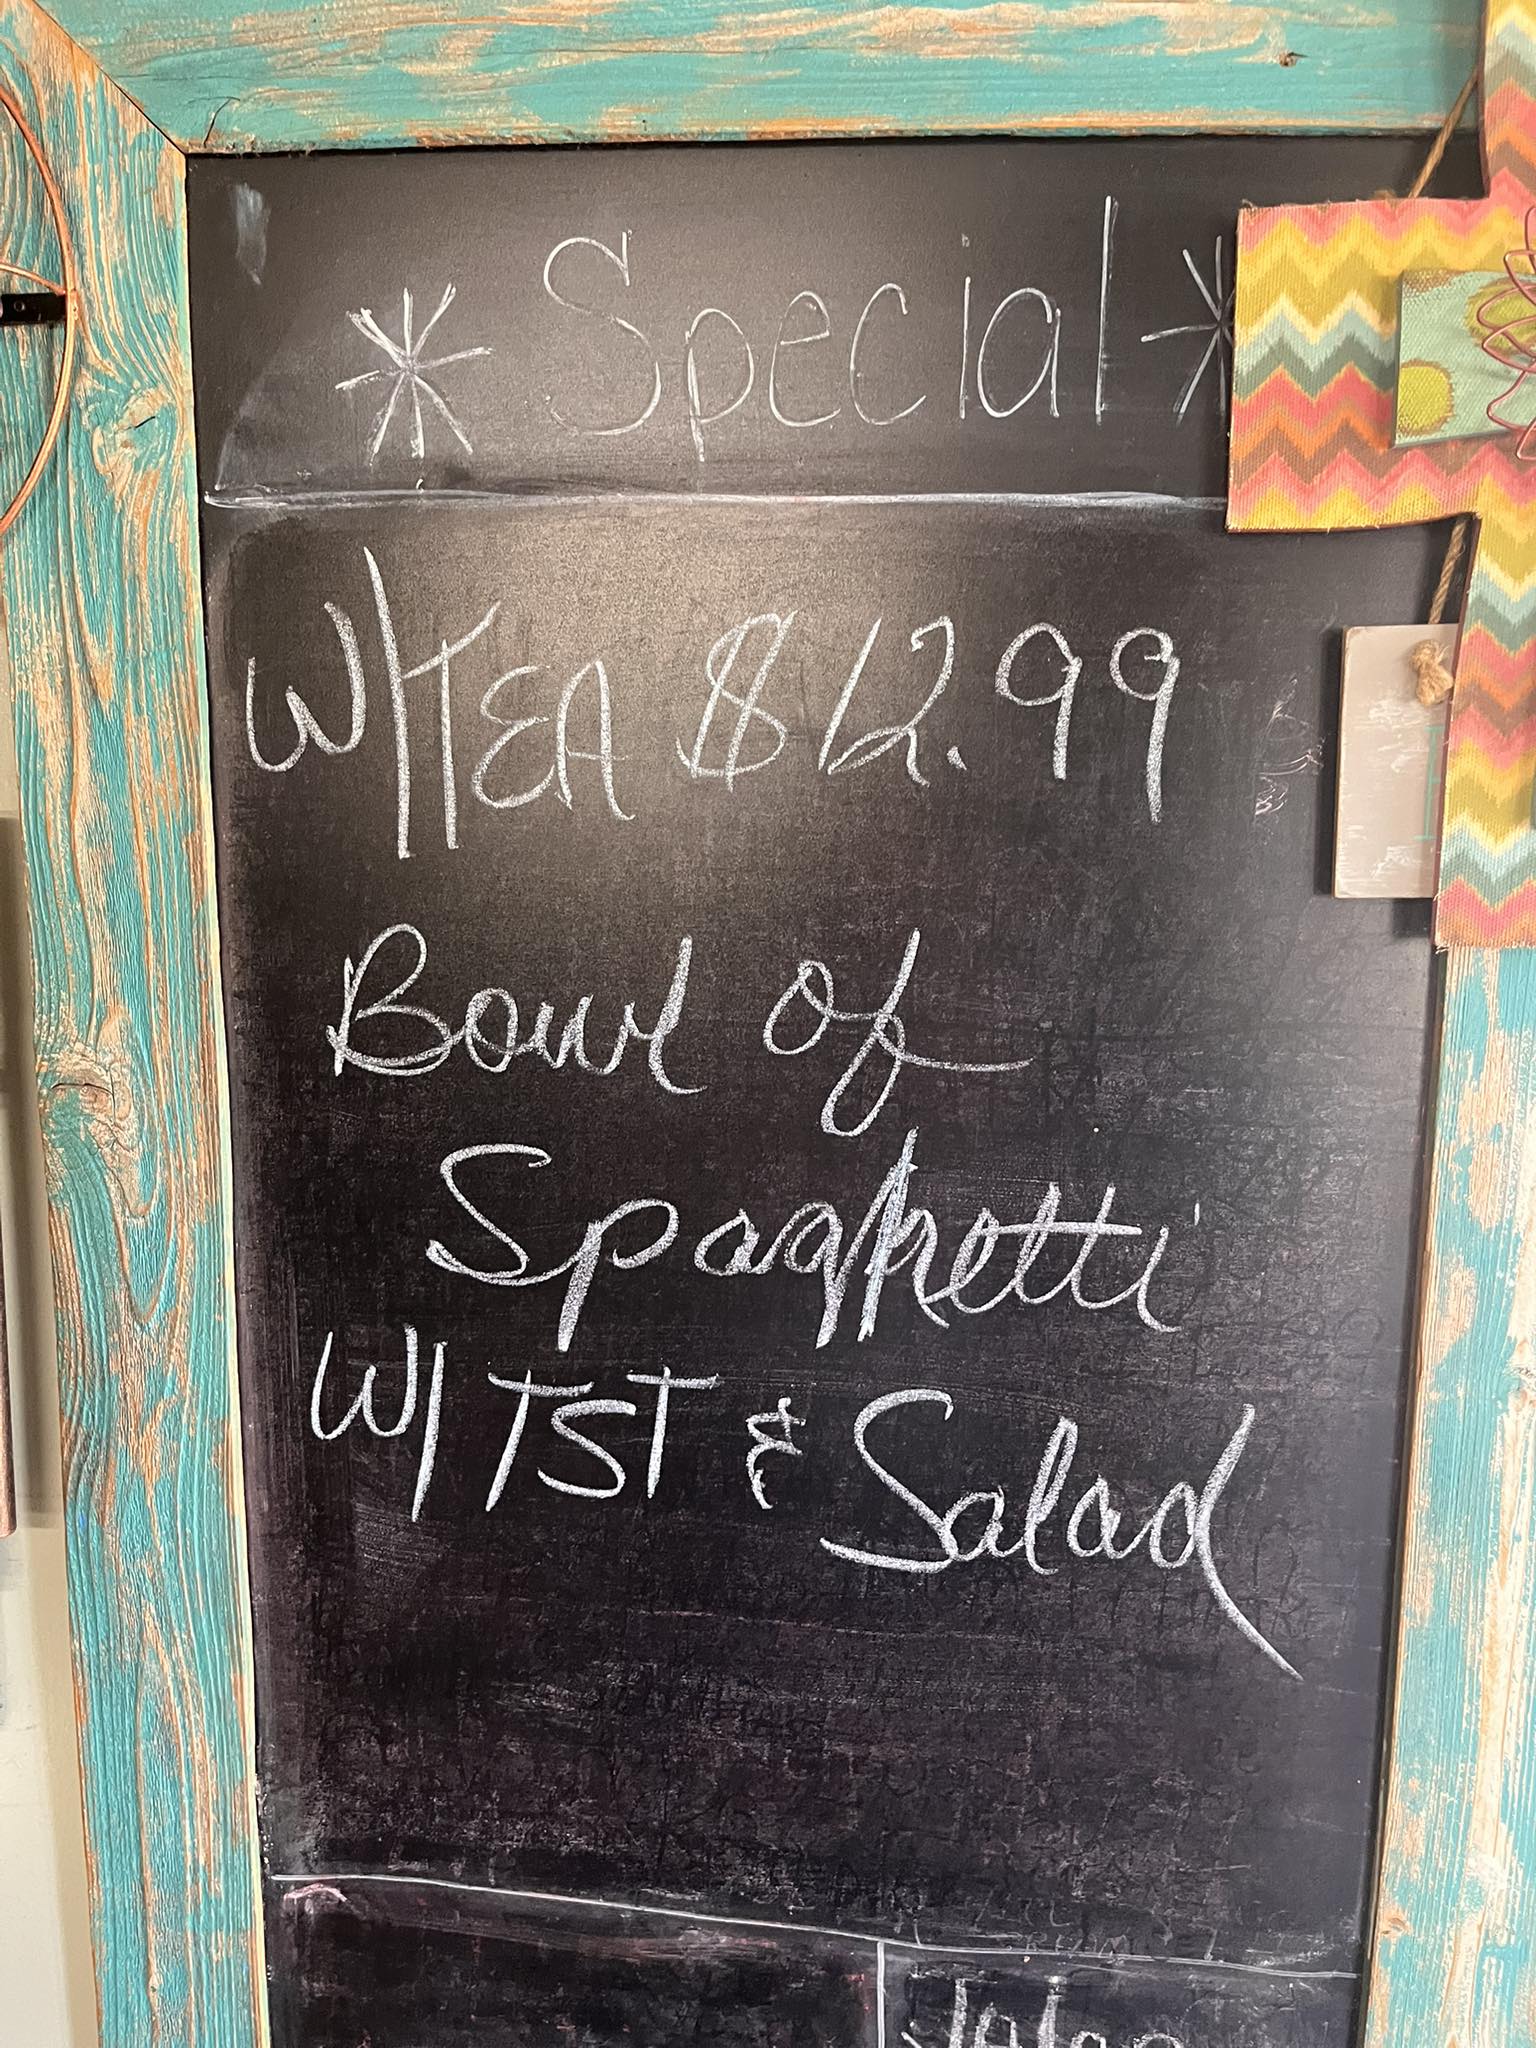 * Special *
W/TEA $12.99
Bowl of
Spaghetti
W/ TST & Salad